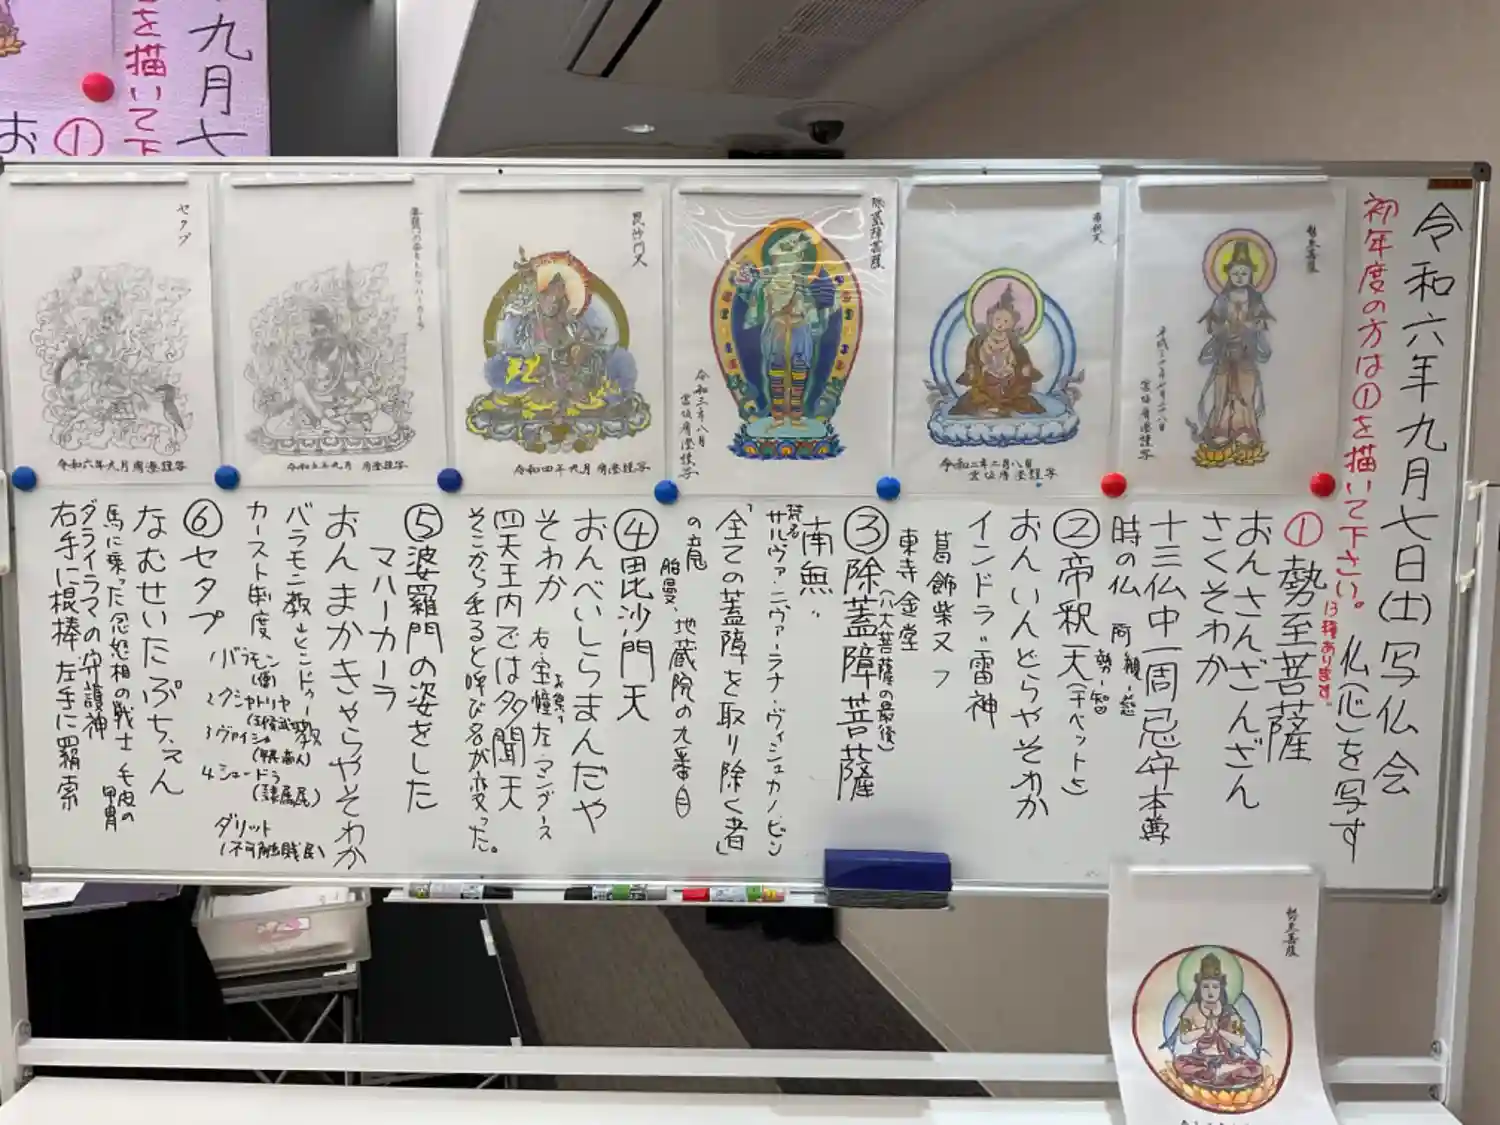 令和六年九月七日(土)写仏会
初年度の方は①を描いて下さい。
13種あります。
仏(心)を写す
①勢至菩薩
おんさんざんざん
さくそわか
十三仏中一周忌守本尊
時の仏
観-慈
勢-智
②帝釈天(チベット)
おんいんどらやそわか
インドラ"雷神
葛飾柴又
東寺金堂
③除蓋障菩薩
(八大菩薩の最後)
南無"
梵名
サルヴァ・ニヴァーラナ・ヴィシュカンビン
「全ての蓋障を取り除く者」
地蔵院の九番目
④毘沙門天
おんべいしらまんだや
そわか
右・宝幢左・マングース
四天王内では多聞天
そこから出ると呼び名が変った。
⑤婆羅門の姿をした
マハーカーラ
おんまかきゃらやそわか
バラモン教→ヒンドゥー教
カースト制度
1バラモン
(僧)
2クシャトリヤ
(王候武)
3ヴァイシャ
(平民商人)
4シュードラ
(隷属民)
ダリット
(不可触賤民)
⑥セタプ
なむせいたぷちぇん
馬に乗った忿怒相の戦士
毛皮の
甲冑
ダライラマの守護神
右手に棍棒左手に羂索
勢至菩薩
帝釈天
令和二年二月八日
除蓋障菩薩
令和三年八月
毘沙門天
令和四年九月
令和五年九月
セタプ
令和六年九月
勢至菩薩
九月七
を描いて下
①
お